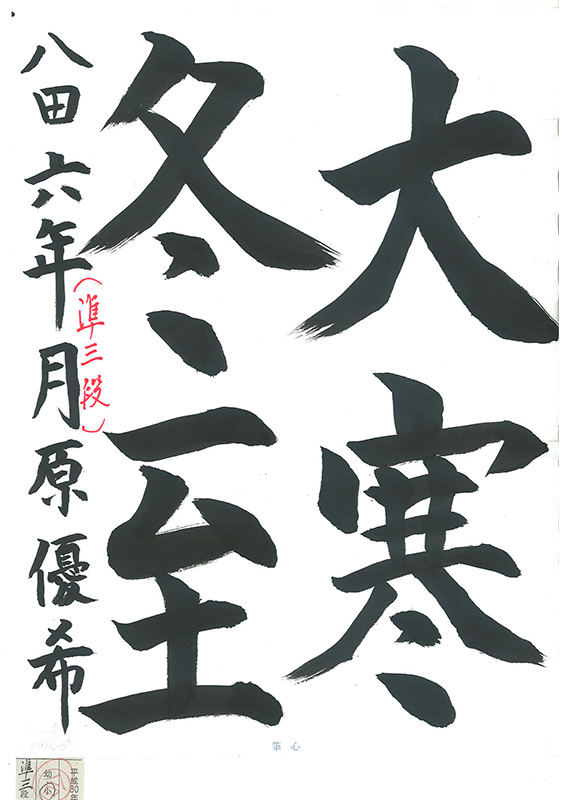 大寒
冬至
八田 六年 月原優希
（準三段）
筆心
のりしろ
平成30年
幼
小
準三段